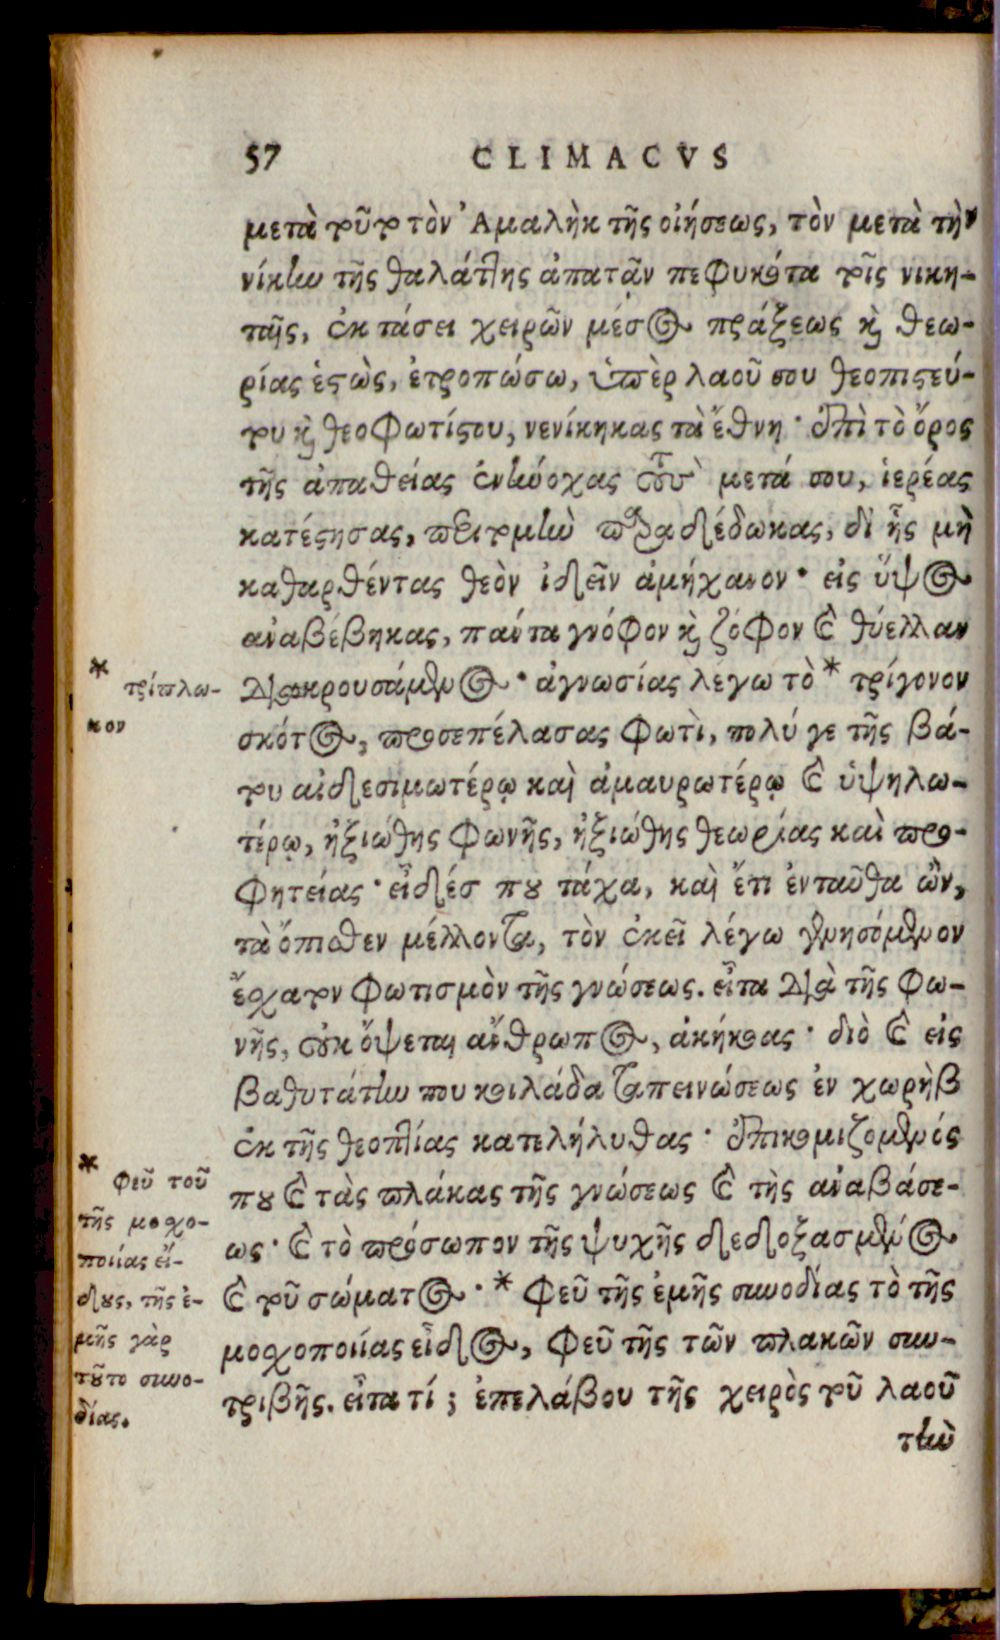 57 CLIMACVS
μετὰ τοῦτον Ἀμαλὴκ τῆς οἰήσεως, τὸν μετὰ τὴν
νίκην τῆς θαλάττης ἀπατᾶν πεφυκότα τοῖς νικη-
ταῖς, ἐκτάσει χειρῶν μέσος πράξεως καὶ θεω-
ρίας ἑστὼς, ἐτροπώσω, ὑπὲρ λαοῦ σου θεοπιστεύ-
του καὶ θεοφωτίστου, νενίκηκας τὰ ἔθνη· ἐπὶ τὸ ὄρος
τῆς ἀπαθείας ἐνηύοχας τοὺς μετά σου, ἱερέας
κατέστησας, περιτομὴν παραδέδωκας, δι ἧς μὴ
καθαρθέντας θεὸν ἰδεῖν ἀμήχανον· εἰς ὕψος
ἀναβέβηκας, πάντα γνόφον καὶ ζόφον καὶ θύελλαν
διακρουσάμενος· ἀγνωσίας λέγω τὸ * τρίγονον
σκότος, προσεπέλασας φωτὶ, πολύ γε τῆς βά-
του αἰδεσιμωτέρῳ καὶ ἀμαυρωτέρῳ καὶ ὑψηλω-
τέρῳ, ἠξιώθης φωνῆς, ἠξιώθης θεωρίας καὶ προ-
φητείας· εἶδές που τάχα, καὶ ἔτι ἐνταῦθα ὢν,
τὰ ὄπισθεν μέλλοντα, τὸν ἐκεῖ λέγω γενησόμενον
ἔσχατον φωτισμὸν τῆς γνώσεως. εἶτα διὰ τῆς φω-
νῆς, οὐκ ὄψεται ἄνθρωπος, ἀκήκοας· διὸ καὶ εἰς
βαθυτάτην που κοιλάδα ταπεινώσεως ἐν χωρὴβ
ἐκ τῆς θεοπτίας κατελήλυθας· ἐπικομιζομενός
που καὶ τὰς πλάκας τῆς γνώσεως καὶ τῆς ἀναβάσε-
ως· καὶ τὸ πρόσωπον τῆς ψυχῆς δεδοξασμένος
καὶ τοῦ σώματος· * φεῦ τῆς ἐμῆς συνοδίας τὸ τῆς
μοσχοποιίας εἶδος, φεῦ τῆς τῶν πλακῶν συν-
τριβῆς. εἶτα τί; ἐπελάβου τῆς χειρὸς τοῦ λαοῦ
τὴν
* τρίπλω-
κον
* φεῦ τοῦ
τῆς μοσχο-
ποιίας εἴ-
δους, τῆς ἐ-
μῆς γὰρ
τοῦτο συνο-
δίας.